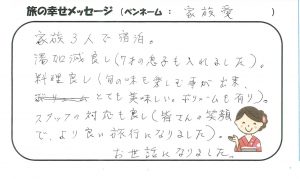 旅の幸せメッセージ（ペンネーム： 家族愛 ）
家族3人で宿泊。
湯加減良し（7才の息子も入れました）。
料理良し（旬の味を楽しむ事が出来、
とても美味しい。ボリュームも有り）。
スタッフの対応も良し（皆さんの笑顔
で、より良い旅行になりました）。
お世話になりました。